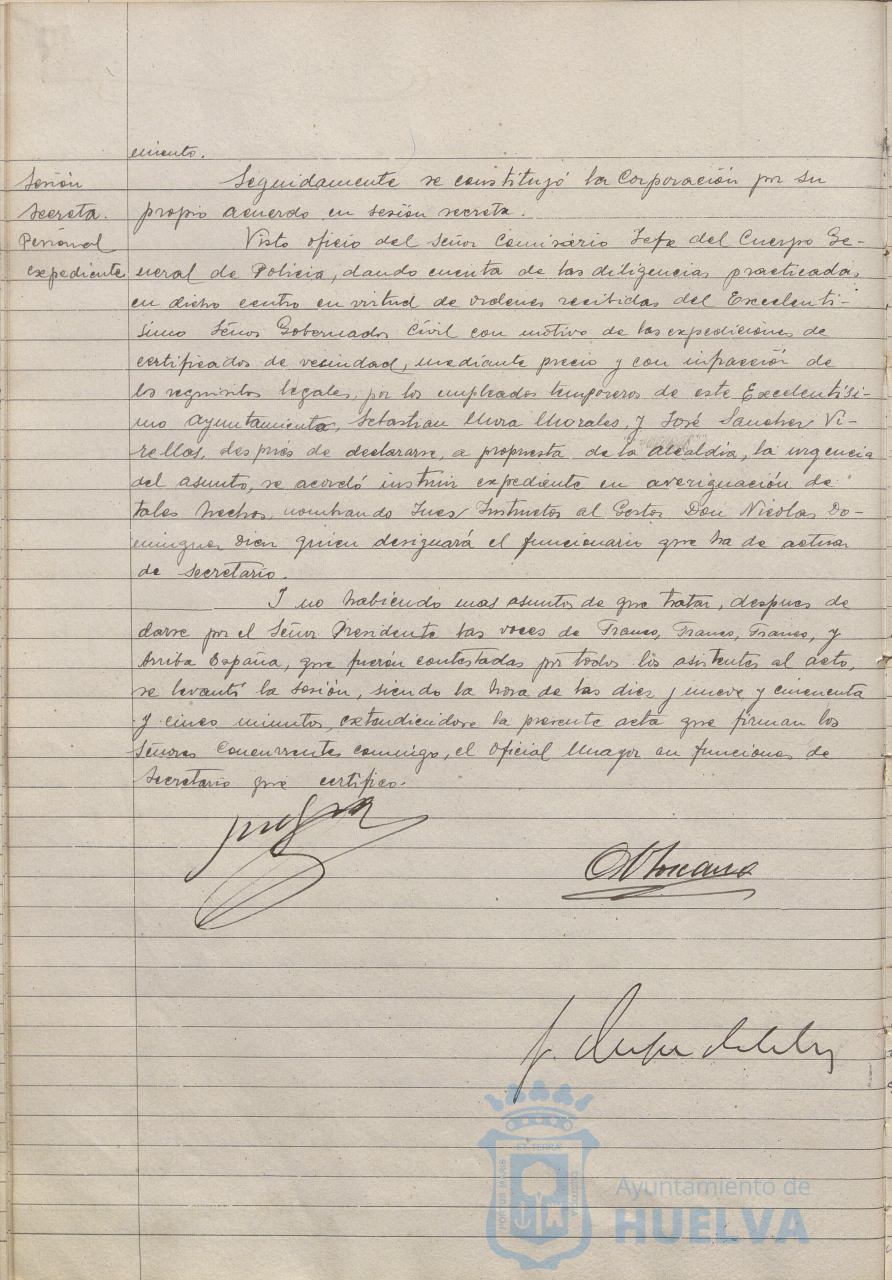 miento.
Sesión
Secreta.
Personal
expediente
Seguidamente se constituyó la Corporación por su
propio acuerdo en sesión secreta.
Visto oficio del Señor Comisario Jefe del Cuerpo Ge-
neral de Policia, dando cuenta de las diligencias practicadas
en dicho centro en virtud de ordenes recibidas del Excelentí-
simo Señor Gobernador Civil con motivo de las expediciones de
certificados de vecindad, mediante precio y con infracción de
los requisitos legales, por los empleados temporeros de este Excelentísi-
mo Ayuntamiento, Sebastian Mora Morales, y José Sanchez Vi-
rellas, después de declararse, a propuesta de la Alcaldía, la urgencia
del asunto, se acordó instruir expediente en averiguación de
tales hechos, nombrando Juez Instructor al Gestor Don Nicolas Do-
minguez quien designará el funcionario que ha de actuar
de Secretario.
Y no habiendo mas asuntos de que tratar, despues de
darse por el Señor Presidente las voces de Franco, Franco, Franco, y
Arriba España, que fueron contestadas por todos los asistentes al acto,
se levantó la sesión, siendo la hora de las diez y nueve y cincuenta
y cinco minutos, extendiendose la presente acta que firman los
Señores Concurrentes conmigo, el Oficial Mayor en funciones de
Secretario que certifico.
ET TERRÆ
PORTUS MARIS
CUSTODIA
Ayuntamiento de
HUELVA